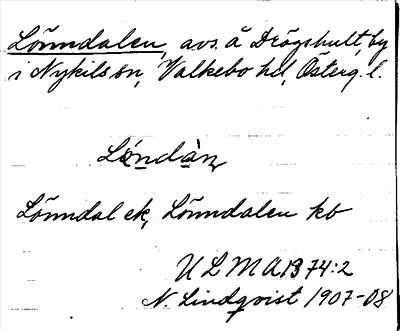 Lönndalen, avs. å Drögshult, by
i Nykils sn, Valkebo hd, Österg. l.
Lö́ndàn,
Lönndal ek, Lönndalen kb
ULMA 1374:2
N. Lindqvist 1907-08